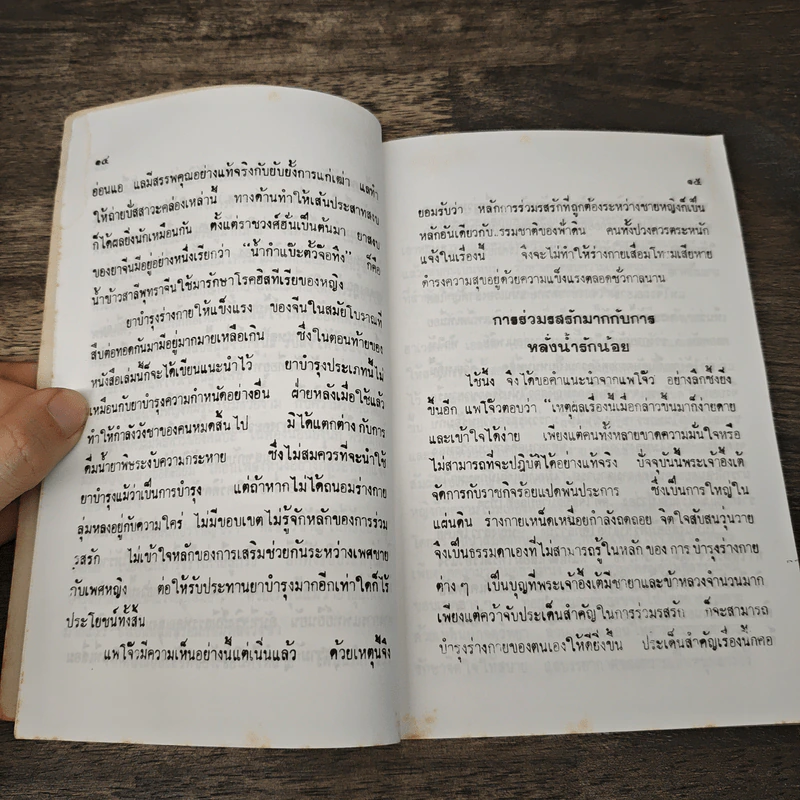 ๑๔
อ่อนแอ และมีสรรพคุณอย่างแท้จริงกับยับยั้งการแก่เฒ่า และทำ
ให้ถ่ายปัสสาวะคล่องเหล่านี้ ทางด้านทำให้เส้นประสาทสงบ
ก็ได้ผลยิ่งนักเหมือนกัน ตั้งแต่ราชวงศ์ฮั่นเป็นต้นมา ยาสงบ
ของยาจีนมีอยู่อย่างหนึ่งเรียกว่า “น้ำกำแบ๊ะตั้วจ๊อทึง” ก็คือ
น้ำข้าวสาลีพุทราจีนใช้มารักษาโรคฮิสทีเรียของหญิง
ยาบำรุงร่างกายให้แข็งแรง ของจีนในสมัยโบราณที่
สืบต่อทอดกันมามีอยู่มากมายเหลือเกิน ซึ่งในตอนท้ายของ
หนังสือเล่มนี้ก็จะได้เขียนแนะนำไว้ ยาบำรุงประเภทนี้ไม่
เหมือนกับยาบำรุงความกำหนัดอย่างอื่น ฝ่ายหลังเมื่อใช้แล้ว
ทำให้กำลังวังชาของคนหมดสิ้นไป มิได้แตกต่างกับการ
ดื่มน้ำยาพิษระงับความกระหาย ซึ่งไม่สมควรที่จะนำใช้
ยาบำรุงแม้ว่าเป็นการบำรุง แต่ถ้าหากไม่ได้ถนอมร่างกาย
ลุ่มหลงอยู่กับความใคร่ ไม่มีขอบเขตไม่รู้จักหลักของการร่วม
รสรัก ไม่เข้าใจหลักของการเสริมช่วยกันระหว่างเพศชาย
กับเพศหญิง ต่อให้รับประทานยาบำรุงมากอีกเท่าใดก็ไร้
ประโยชน์ทั้งสิ้น
แพโจ๊วมีความเห็นอย่างนี้แต่เนิ่นแล้ว ด้วยเหตุนี้จึง
๑๕
ยอมรับว่า หลักการร่วมรสรักที่ถูกต้องระหว่างชายหญิงก็เป็น
หลักอันเดียวกับธรรมชาติของฟ้าดิน คนทั้งปวงควรตระหนัก
แจ้งในเรื่องนี้ จึงจะไม่ทำให้ร่างกายเสื่อมโทรมเสียหาย
ดำรงความสุขอยู่ด้วยความแข็งแรงตลอดชั่วกาลนาน
การร่วมรสรักมากกับการ
หลั่งน้ำรักน้อย
ไช่นึ้ง จึงได้ขอคำแนะนำจากแพโจ๊ว อย่างลึกซึ้งยิ่ง
ขึ้นอีก แพโจ๊วตอบว่า “เหตุผลเรื่องนี้เมื่อกล่าวขึ้นมาก็ง่ายดาย
และเข้าใจได้ง่าย เพียงแต่คนทั้งหลายขาดความมั่นใจหรือ
ไม่สามารถที่จะปฏิบัติได้อย่างแท้จริง ปัจจุบันนี้พระเจ้าอึ้งเต้
จัดการกับราชกิจร้อยแปดพันประการ ซึ่งเป็นการใหญ่ใน
แผ่นดิน ร่างกายเหน็ดเหนื่อยกำลังถดถอย จิตใจสับสนวุ่นวาย
จึงเป็นธรรมดาเองที่ไม่สามารถรู้ในหลัก ของ การ บำรุงร่างกาย
ต่าง ๆ เป็นบุญที่พระเจ้าอึ้งเต้มีชายาและข้าหลวงจำนวนมาก
เพียงแต่คว้าจับประเด็นสำคัญในการร่วมรสรัก ก็จะสามารถ
บำรุงร่างกายของตนเองให้ดียิ่งขึ้น ประเด็นสำคัญเรื่องนี้ก็คือ